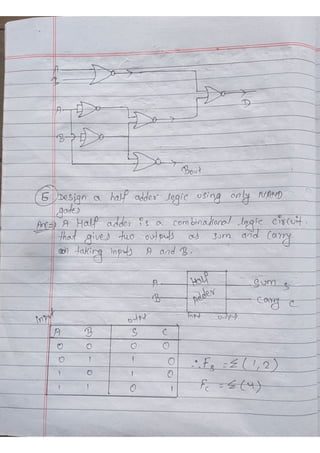 A
B
D
A
B
Bout
5 Design a half adder logic using only NAND
gates
Ans=> A Half adder is a combinational logic circuit.
that gives two outputs as sum and carry
on taking inputs A and B.
A Half Sum S
B Adder Carry C
input output
Input output
A B S C
0 0 0 0
0 1 1 0
1 0 1 0
1 1 0 1
∴ Fs = Σ(1,2)
Fc = Σ(4)